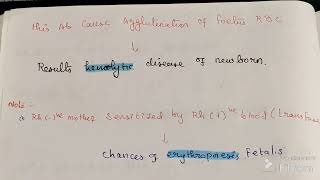 This Ab cause Agglutination of foetus RBC
↓
Results hemolytic disease of newborn.
Note :-
a Rh(-)ve mother sensitized by Rh(+)ve blood (transfus
↓
chances of erythropnesis Fetalis